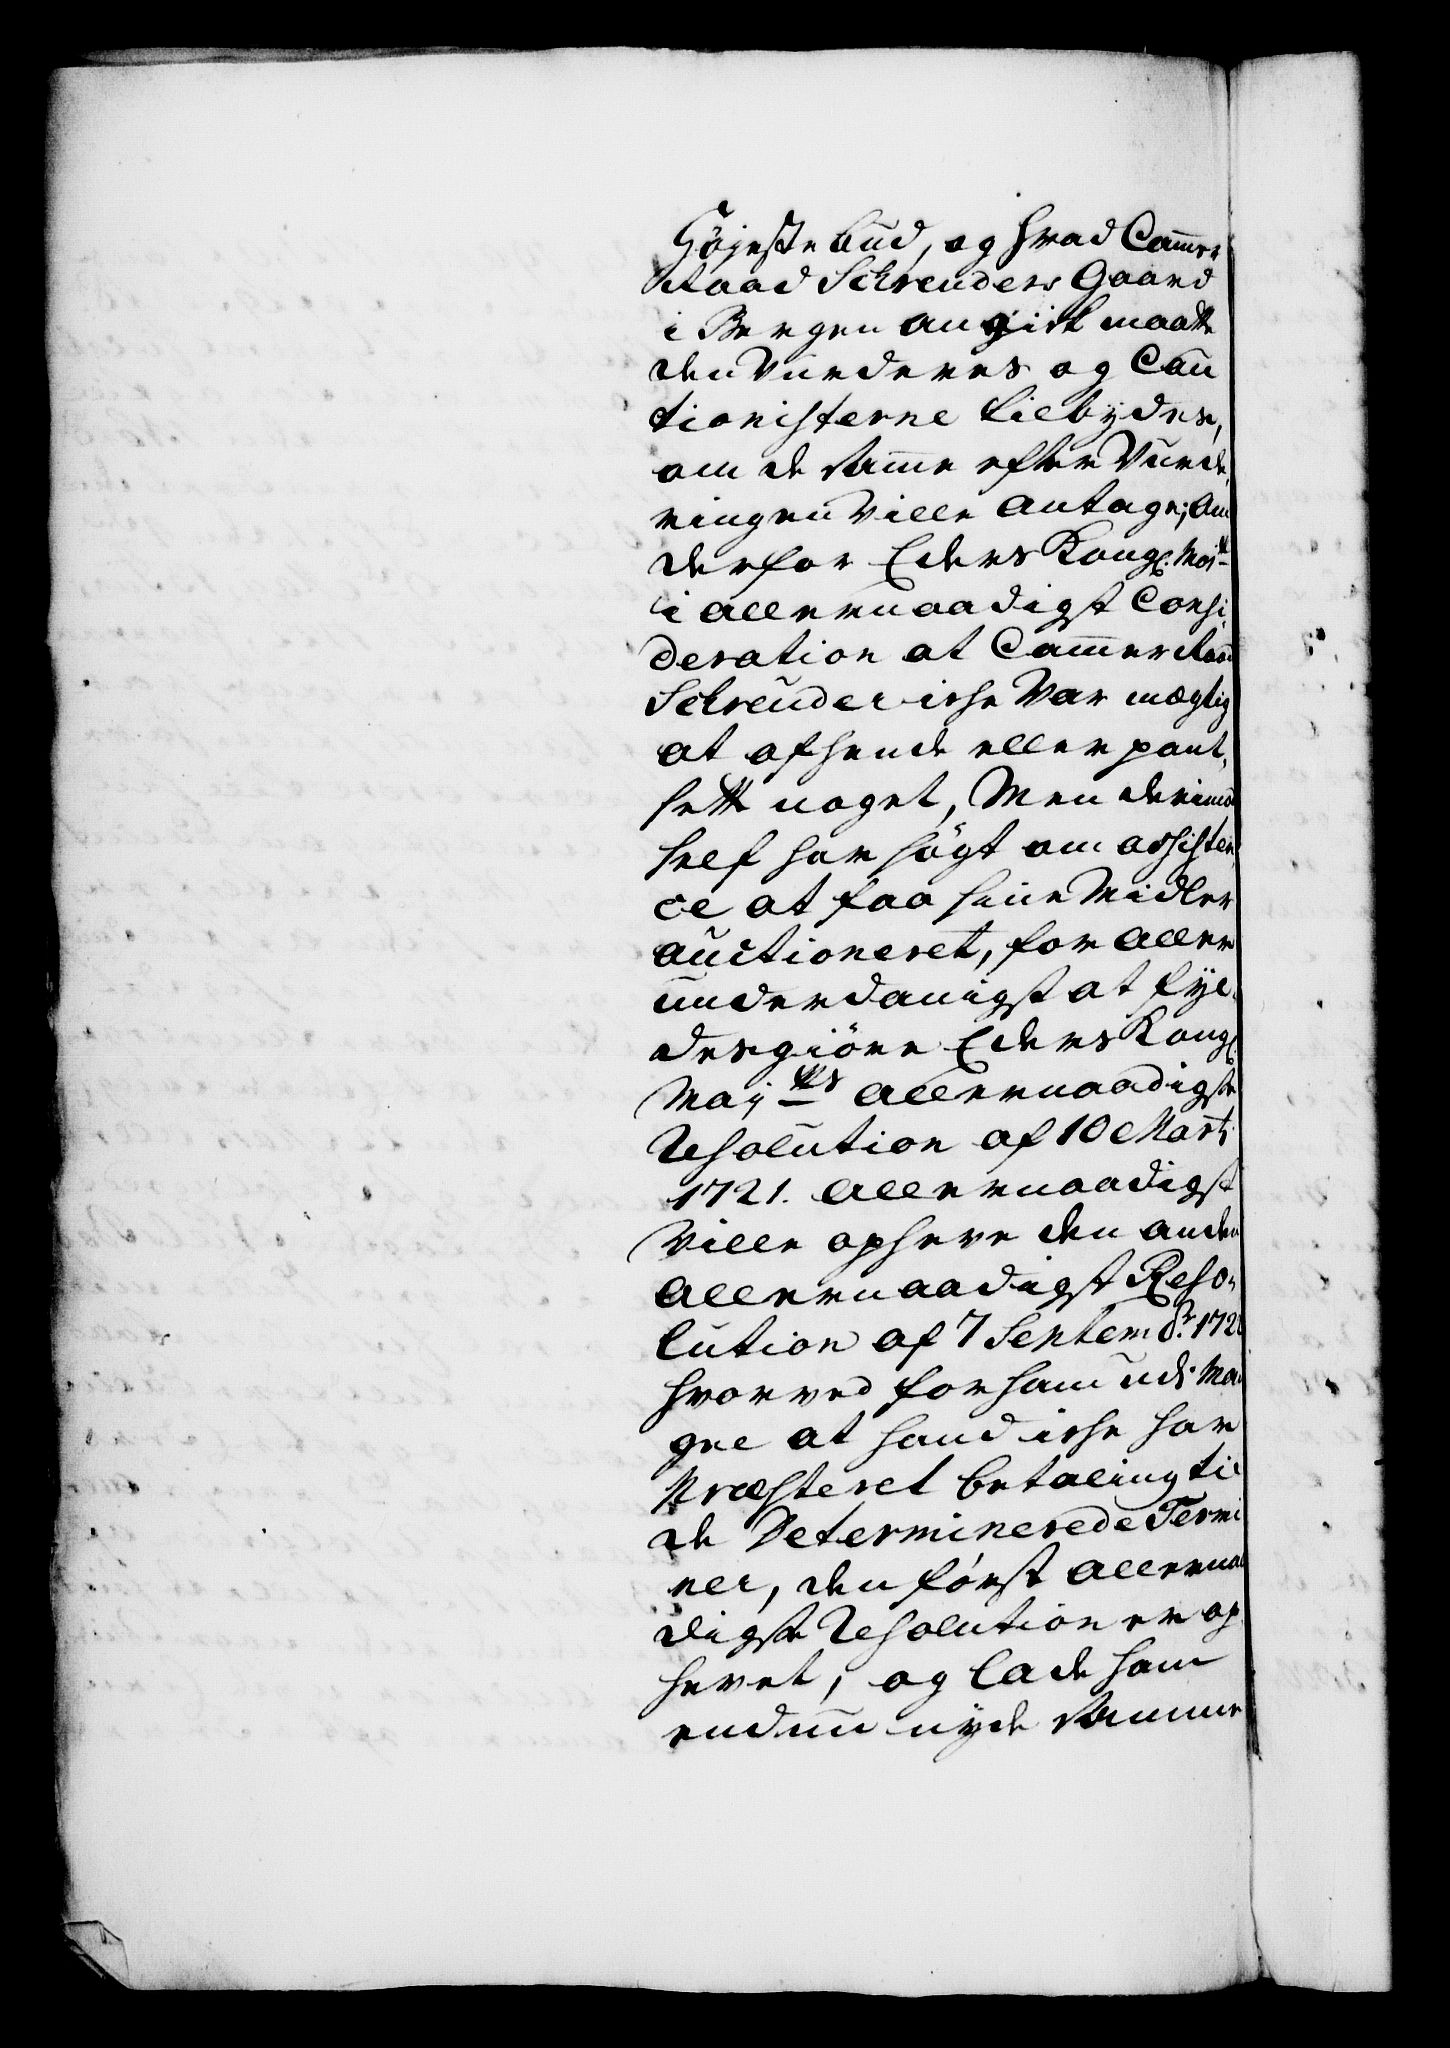 Højeste bud, og hvad Cammer
Raad Schreuders Gaard
i Bergen angiik maatte
den Vurderes og Cau
tionisterne tilbydes,
om de samme efter Vurde,
ringen Ville Antage; Om
derfor Eders Kongl. Maj:tt
i allernaadigst Consi,
deration at Cammer Raad
Schreuder iche Var mægtig
at afhende eller pant,
sette noget, Men derimod
self har søgt om assisten,
ce at faa sine Midler
auctioneret, for aller
underdanigst at fyl,
destgiøre Eders Kongl.
Maj:tts allernaadigste
Resolution af 10 Marti
1721. allernaadigst
Ville ophæve den anden
allernaadigst Reso,
lution af 7 Septembr: 172
hvorved for ham udi Man
gel at hand iche har
Præsteret betaling til
de Determinerede Termi
ner, den først allernaa
digste Resolution er op
hevet, og lade ham
endnu nyde samme